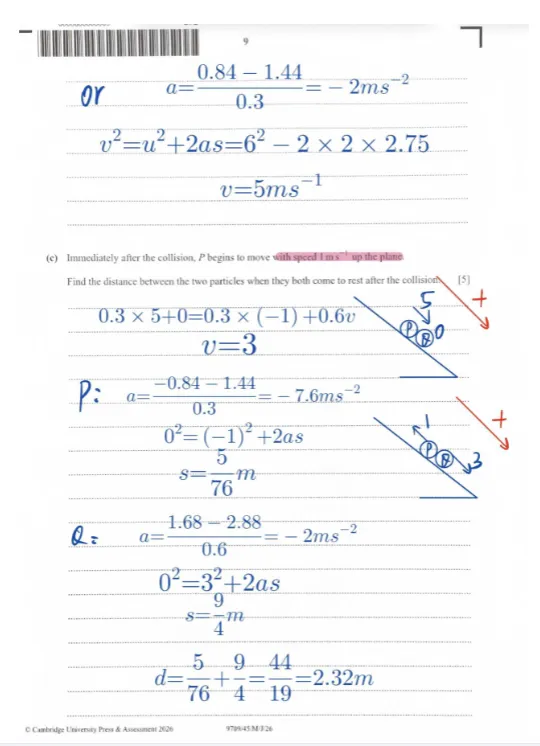 9
or a=(0.84 − 1.44)/0.3 = − 2ms⁻²
v²=u²+2as=6² − 2 × 2 × 2.75
v=5ms⁻¹
(c) Immediately after the collision, P begins to move with speed 1 m s⁻¹ up the plane.
Find the distance between the two particles when they both come to rest after the collision. [5]
0.3 × 5+0=0.3 × (−1) +0.6v
v=3
5
P Q 0
+
P: a=(−0.84 − 1.44)/0.3 = − 7.6ms⁻²
0²= (−1)² +2as
s=5/76 m
1
P Q 3
+
Q: a=(1.68 − 2.88)/0.6 = − 2ms⁻²
0²=3²+2as
s=9/4 m
d=5/76+9/4=44/19=2.32m
© Cambridge University Press & Assessment 2026 9709/45/M/J/26